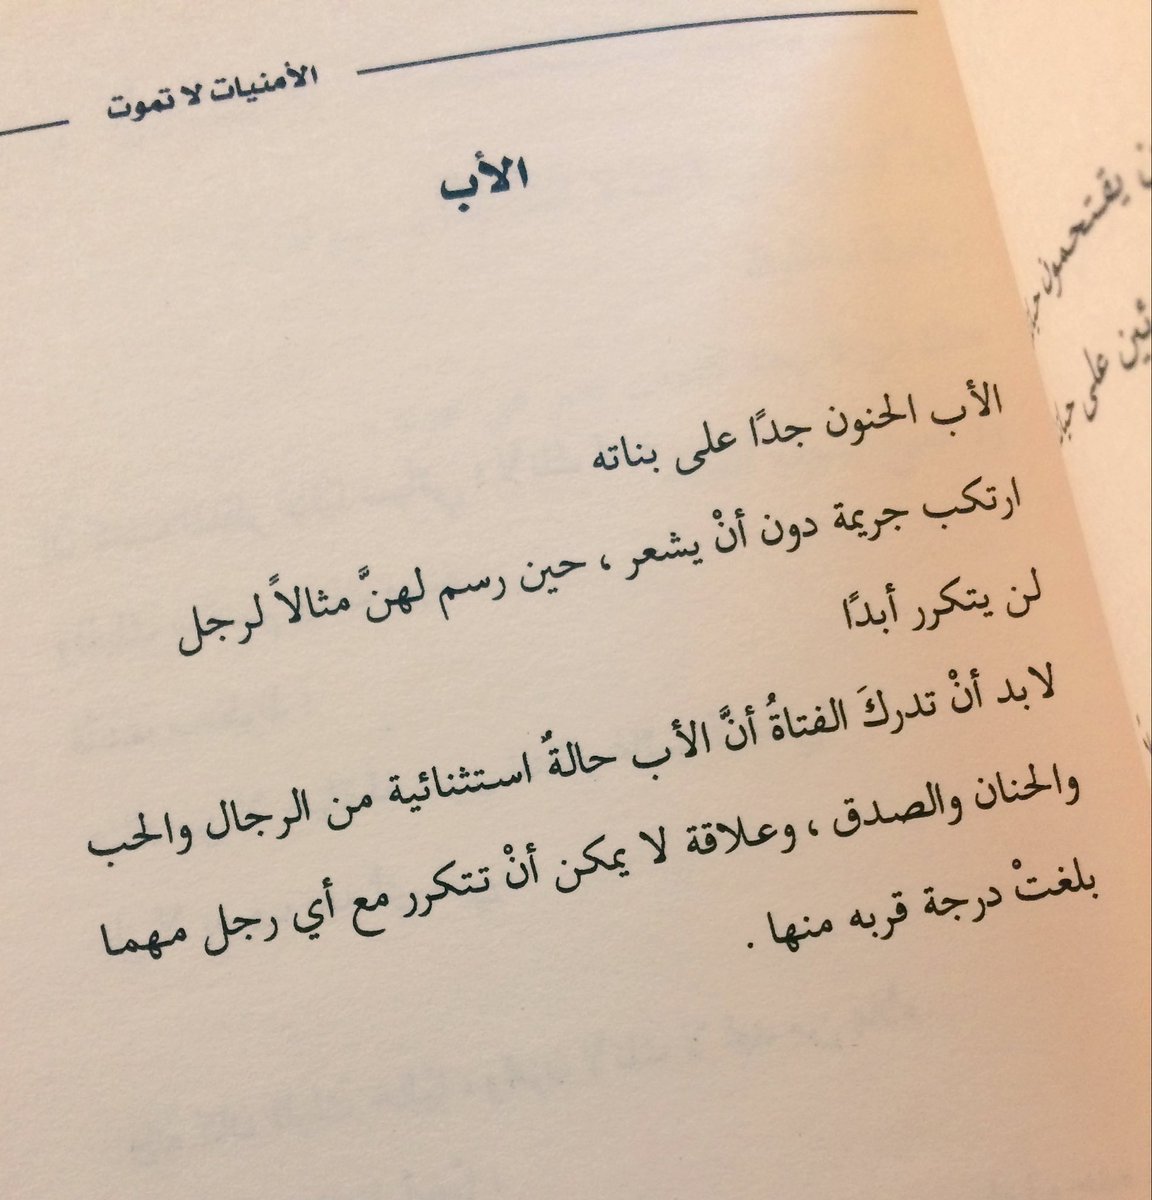 الأمنيات لا تموت
الأب
الأب الحنون جدًا على بناته
ارتكب جريمة دون أنْ يشعر ، حين رسم لهنَّ مثالاً لرجل
لن يتكرر أبدًا
لابد أنْ تدركَ الفتاةُ أنَّ الأب حالةٌ استثنائية من الرجال والحب
والحنان والصدق ، وعلاقة لا يمكن أنْ تتكرر مع أي رجل مهما
بلغتْ درجة قربه منها .
على